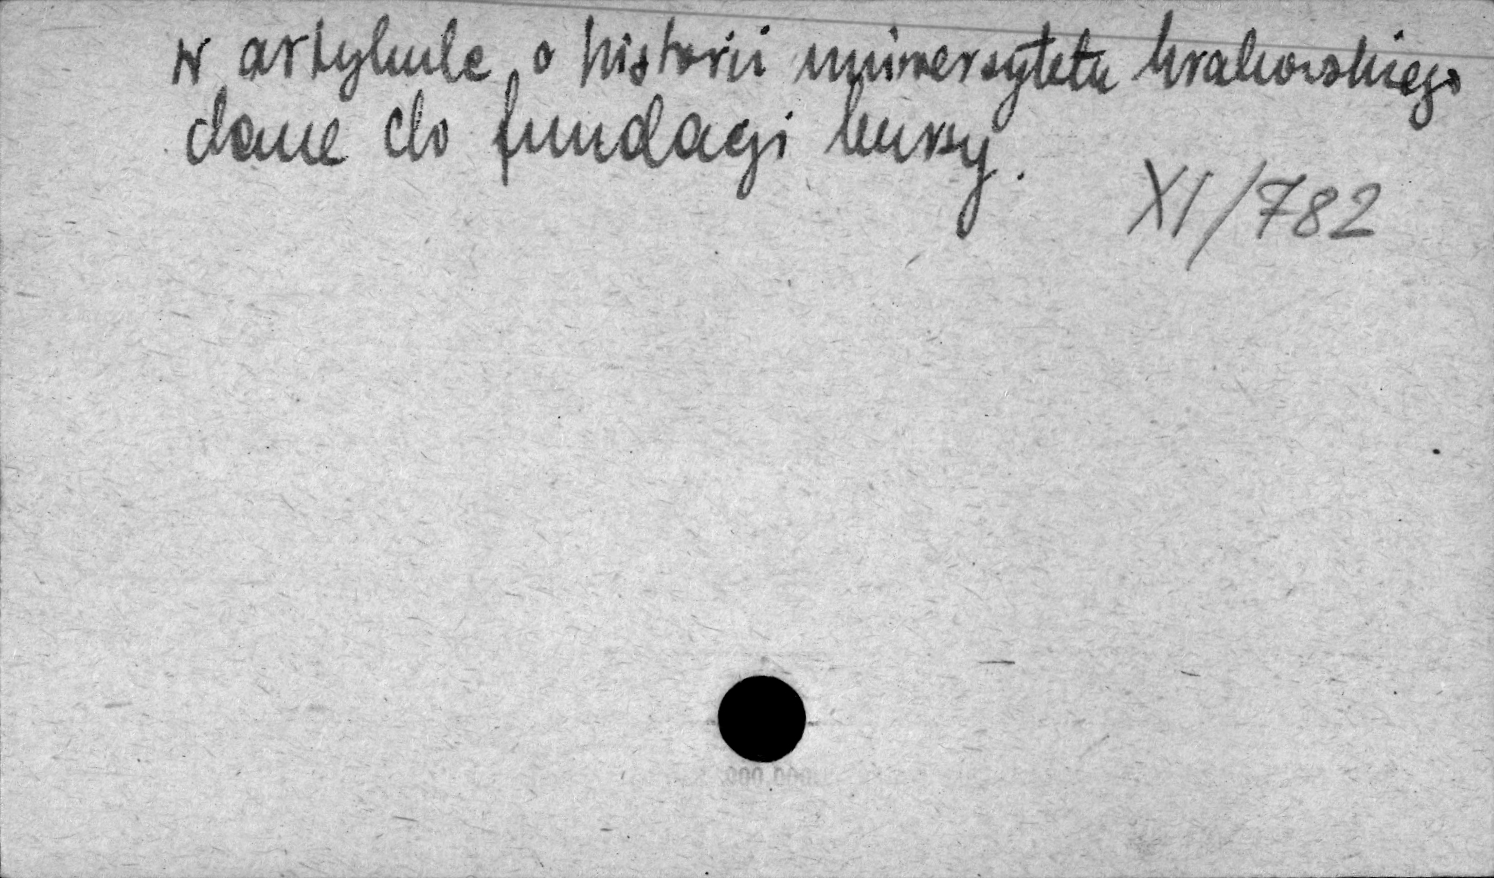 w artykule o historii uniwersytetu krakowskiego
dane do fundacji bursy.
XI/782